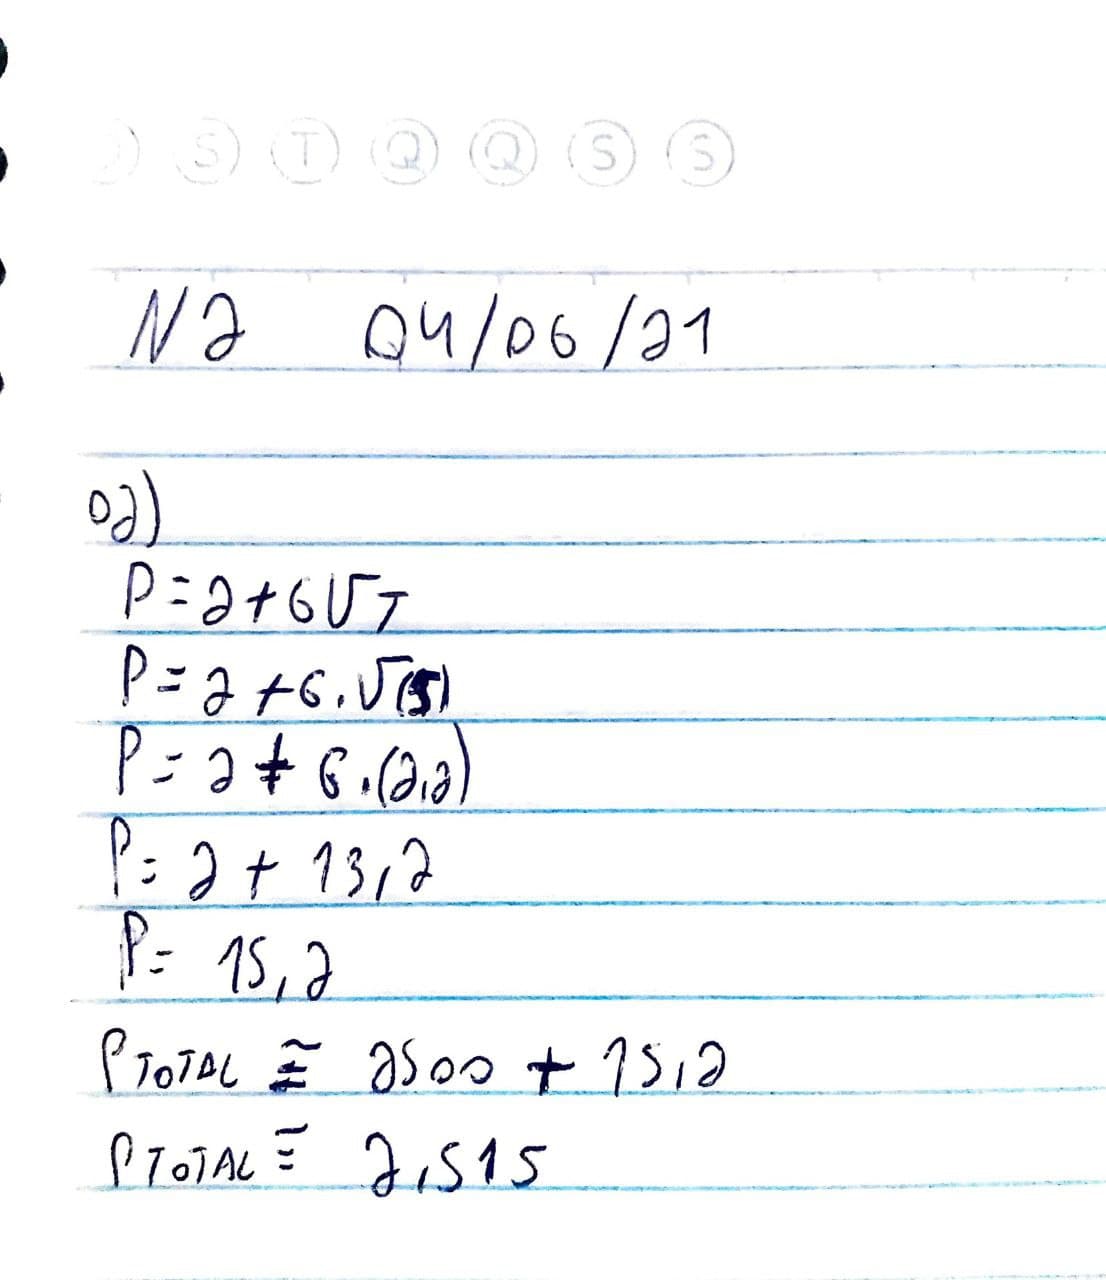 S T Q Q S S
N2 04/06/21
02)
P=2+6√T
P=2+6.√(5)
P=2+6.(2,2)
P=2+13,2
P=15,2
PTOTAL ≅ 2500 + 15,2
PTOTAL ≅ 2,515